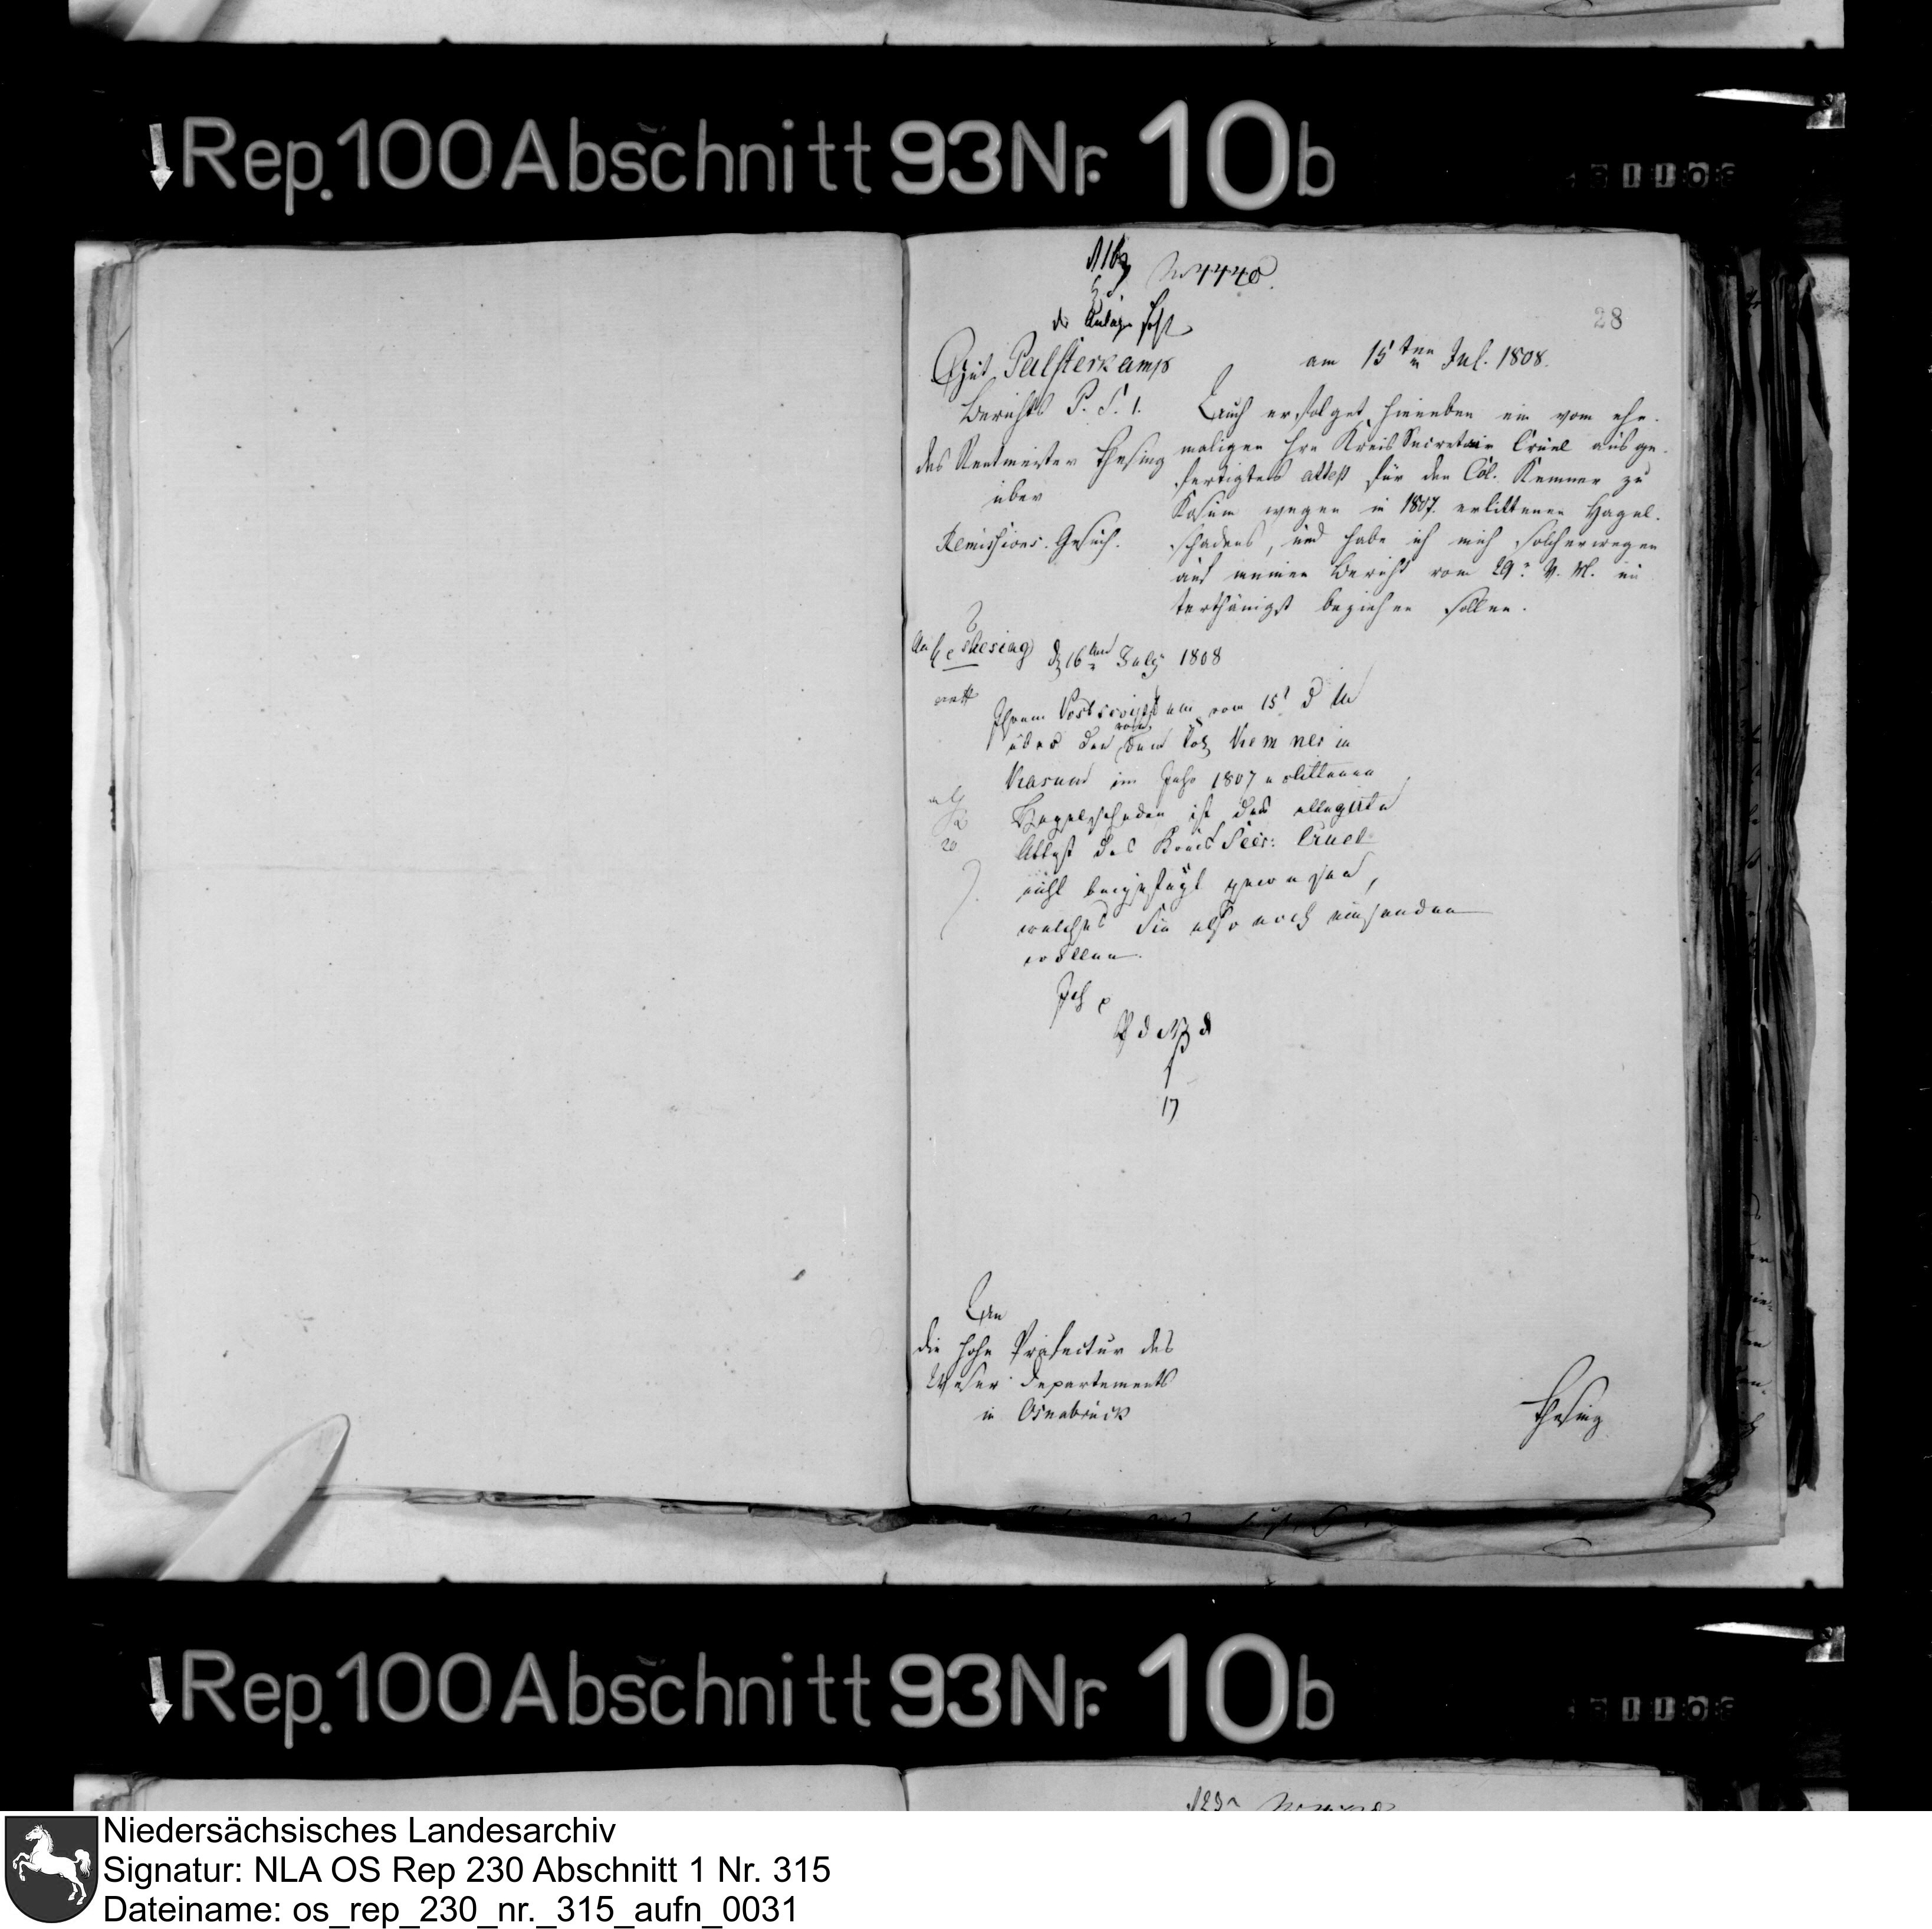 Rep. 100 Abschnitt 93 Nr. 10b
No 4440.
die Anlage fehlt
28
Gut Palsterkamp
am 15ten Jul. 1808.
Bericht P. S. 1.
des Rentmeister Thesing
über
Remissions-Gesuch.
Auch erfolget hieneben ein vom ehe-
maligen Hrn Kreis Secretair Cruel ausge-
fertigtes attest für den Col. Kemner zu
wegen in 1807. erlittenen Hagel-
schadens, und habe ich mich solcherwegen
auf meinen Bericht vom 29. v. M. un
terthänigst beziehen sollen.
An H Thesing
d 16ten July 1808
Ihrem Postscripto vom 15 d M
über den von dem Col Kemner in
im Jahr 1807 erlittenen
Hagelschaden ist das allegirte
Attest des Kreis Secr: Cruel
nicht beygefügt gewesen,
welches Sie also noch einsenden
wollen.
Ich
17
An
die hohe Präfectur des
Weser Departements
in Osnabrück
Thesing
Rep. 100 Abschnitt 93 Nr. 10b
Niedersächsisches Landesarchiv
Signatur: NLA OS Rep 230 Abschnitt 1 Nr. 315
Dateiname: os_rep_230_nr._315_aufn_0031